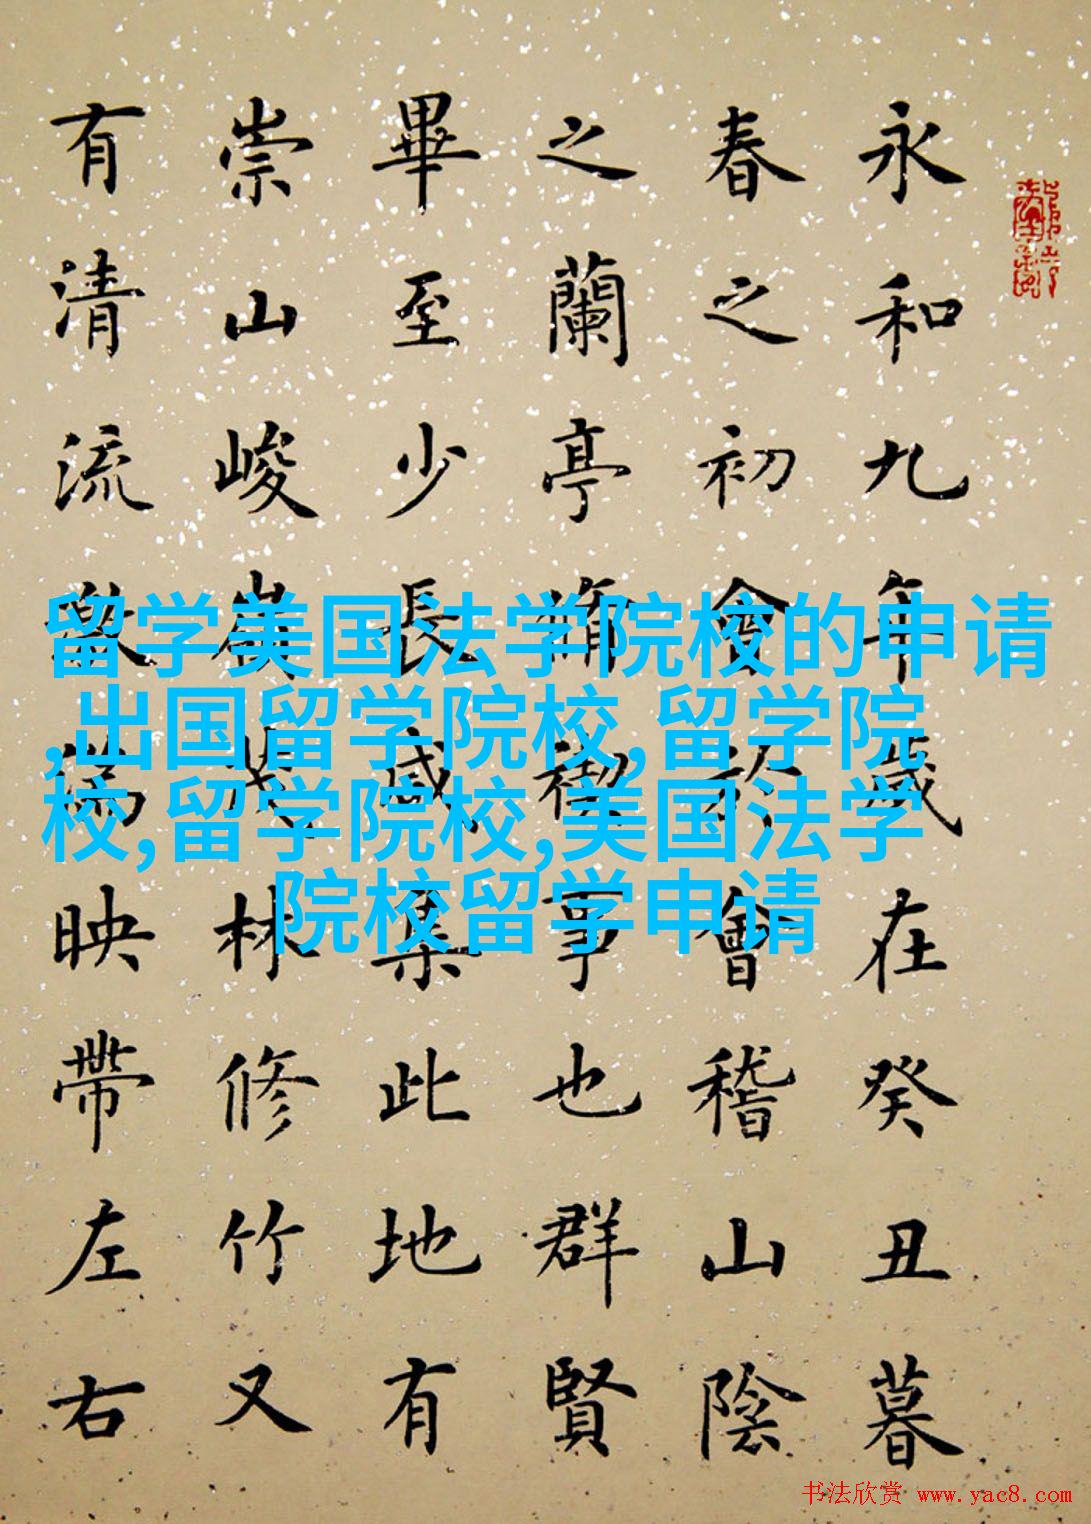 永和九年歲在癸丑暮
春之初會於會稽山陰
之蘭亭脩禊事也群賢
畢至少長咸集此地有
崇山峻嶺茂林修竹又
有清流激湍映帶左右
留学美国法学院校的申请
,出国留学院校,留学院
校,留学院校,美国法学
院校留学申请
书法欣赏 www.yac8.com